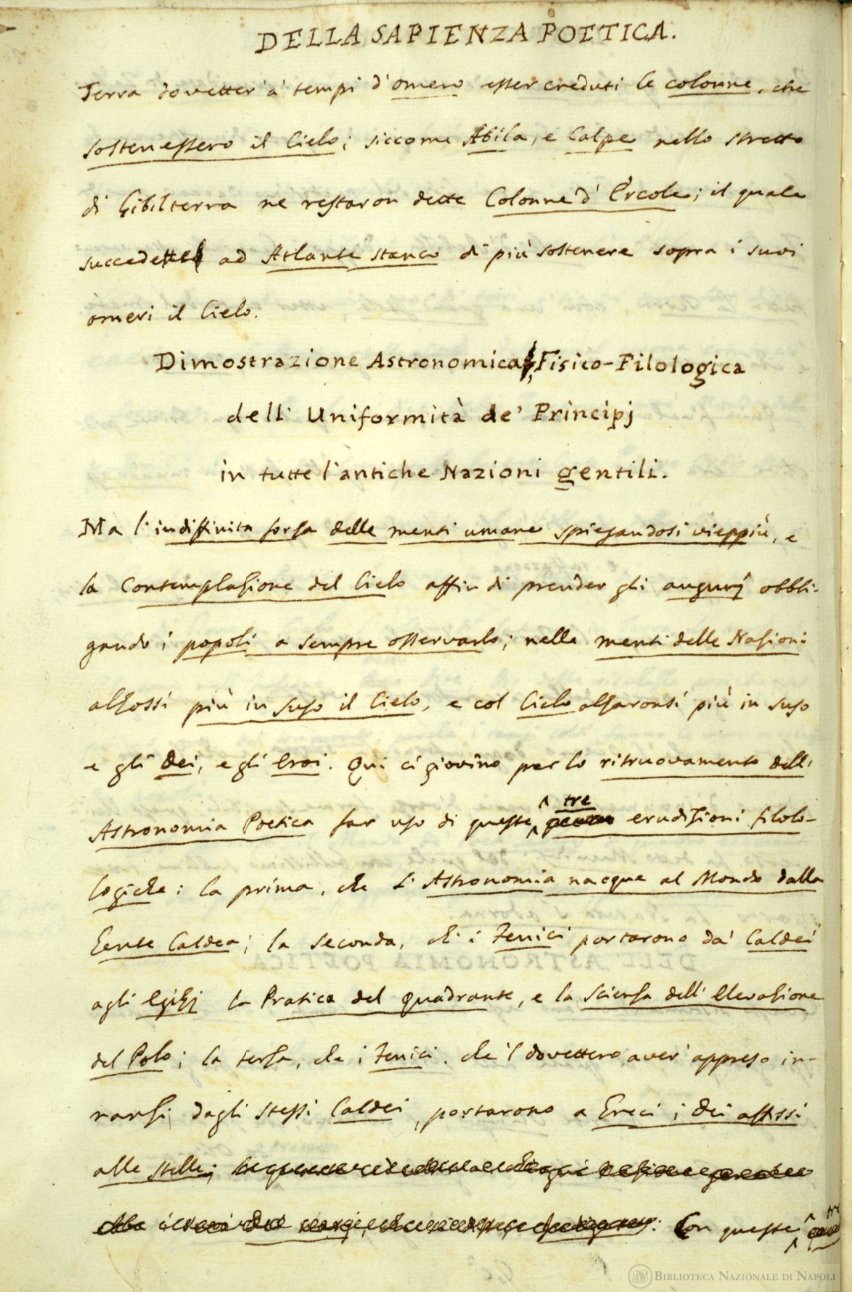 DELLA SAPIENZA POETICA.
Terra dovetter' a' tempi d'omero esser creduti le colonne, che
sostenessero il Cielo; siccome Abila, e Calpe nello stretto
di Gibilterra ne restaron dette Colonne d' Ercole; il quale
succedette ad Atlante stanco di più sostenere sopra i suoi
ómeri il Cielo.
Dimostrazione Astronomica, Fisico-Filologica
dell' Uniformità de' Principj
in tutte l'antiche Nazioni gentili.
Ma l'indiffinita forza delle menti umane spiegandosi vieppiù, e
la Contemplazione del Cielo affin di prender gli augurj obbli-
gando i popoli a sempre osservarlo; nelle menti delle Nazioni
alzossi più in suso il Cielo, e col Cielo alzaronsi più in suso
e gli dei, e gli eroi. Qui ci giovino per lo ritruovamento dell'
Astronomia Poetica far uso di queste tre erudizioni filolo-
logiche: la prima, che l'Astronomia nacque al Mondo dalla
Gente Caldea; la seconda, ch' i Fenici portarono da' Caldei
agli Egizj la Pratica del quadrante, e la scienza dell' elevazione
del Polo; la terza, che i Fenici, che 'l dovettero aver' appreso in-
nanzi dagli stessi Caldei, portarono a' Greci i dei affissi
alle stelle;
Con queste tre
BIBLIOTECA NAZIONALE DI NAPOLI